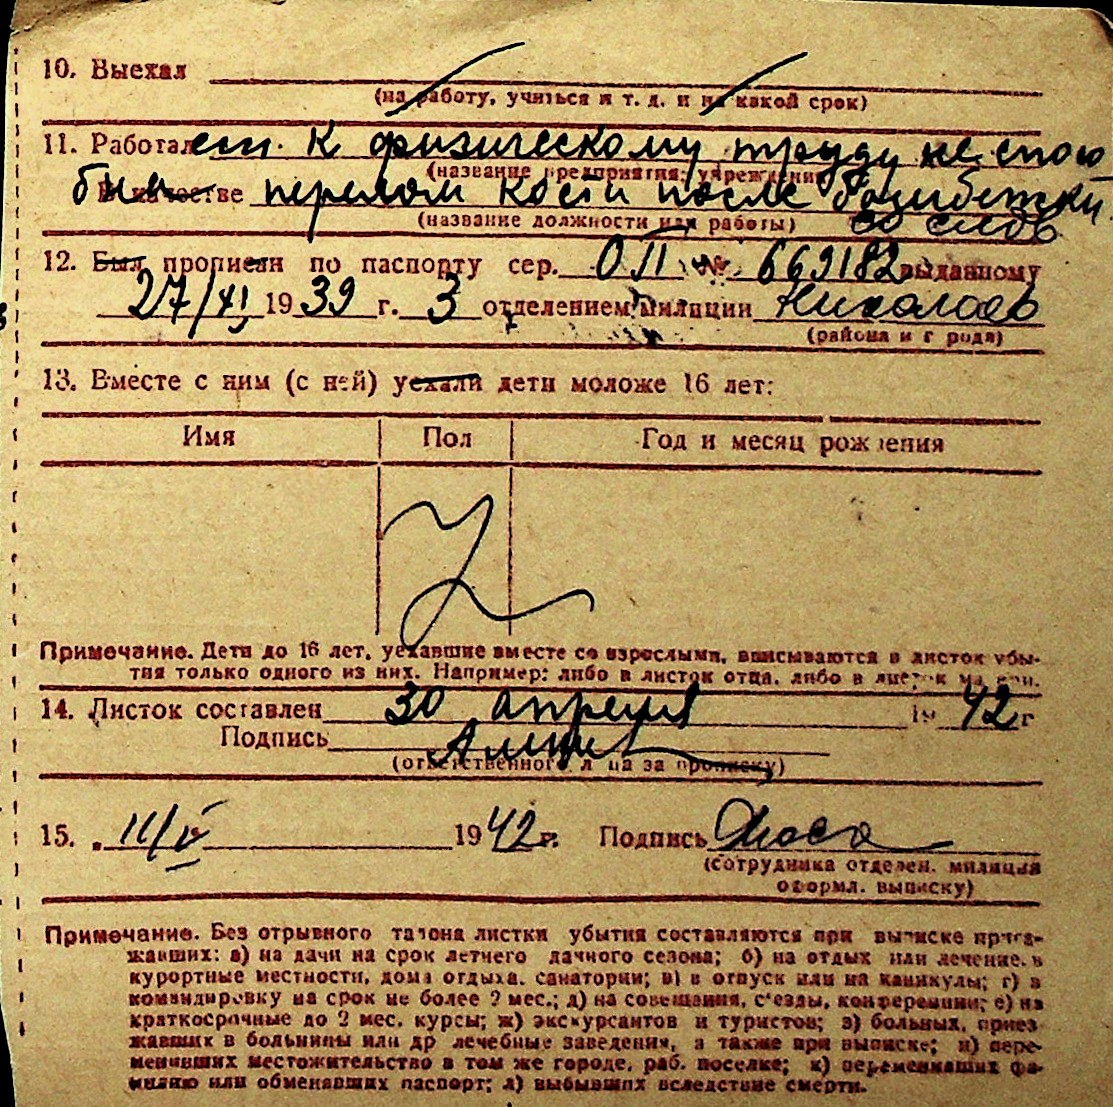 10. Выехал
(на работу, учиться и т. д. и на какой срок)
11. Работал к физическому труду не спосо
(название предприятия, учреждения)
бна в качестве перелом кости после бомбежки
(название должности или работы)
12. Был прописан по паспорту сер. ОП № 669182 выданному
27/XI 1939 г. 3 отделением милиции Николаев
(района и города)
13. Вместе с ним (с ней) уехали дети моложе 16 лет:
Имя Пол Год и месяц рождения
Примечание. Дети до 16 лет, уехавшие вместе со взрослыми, вписываются в листок убы-
тия только одного из них. Например: либо в листок отца, либо в листок ма ери.
14. Листок составлен 30 апреля 1942 г
Подпись
(ответственного лица за прописку)
15. II/V 1942 г. Подпись
(сотрудника отделен. милиции
оформл. выписку)
Примечание. Без отрывного талона листки убытия составляются при выписке приез-
жавших: а) на дачи на срок летнего дачного сезона; б) на отдых или лечение в
курортные местности, дома отдыха, санатории; в) в отпуск или на каникулы; г) в
командировку на срок не более 2 мес.; д) на совещания, с'езды, конференции; е) на
краткосрочные до 2 мес. курсы; ж) экскурсантов и туристов; з) больных, приез
жавших в больницы или др лечебные заведения, а также при выписке; и) пере-
менивших местожительство в том же городе, раб. поселке; к) переменивших фа-
милию или обменявших паспорт; л) выбывших вследствие смерти.